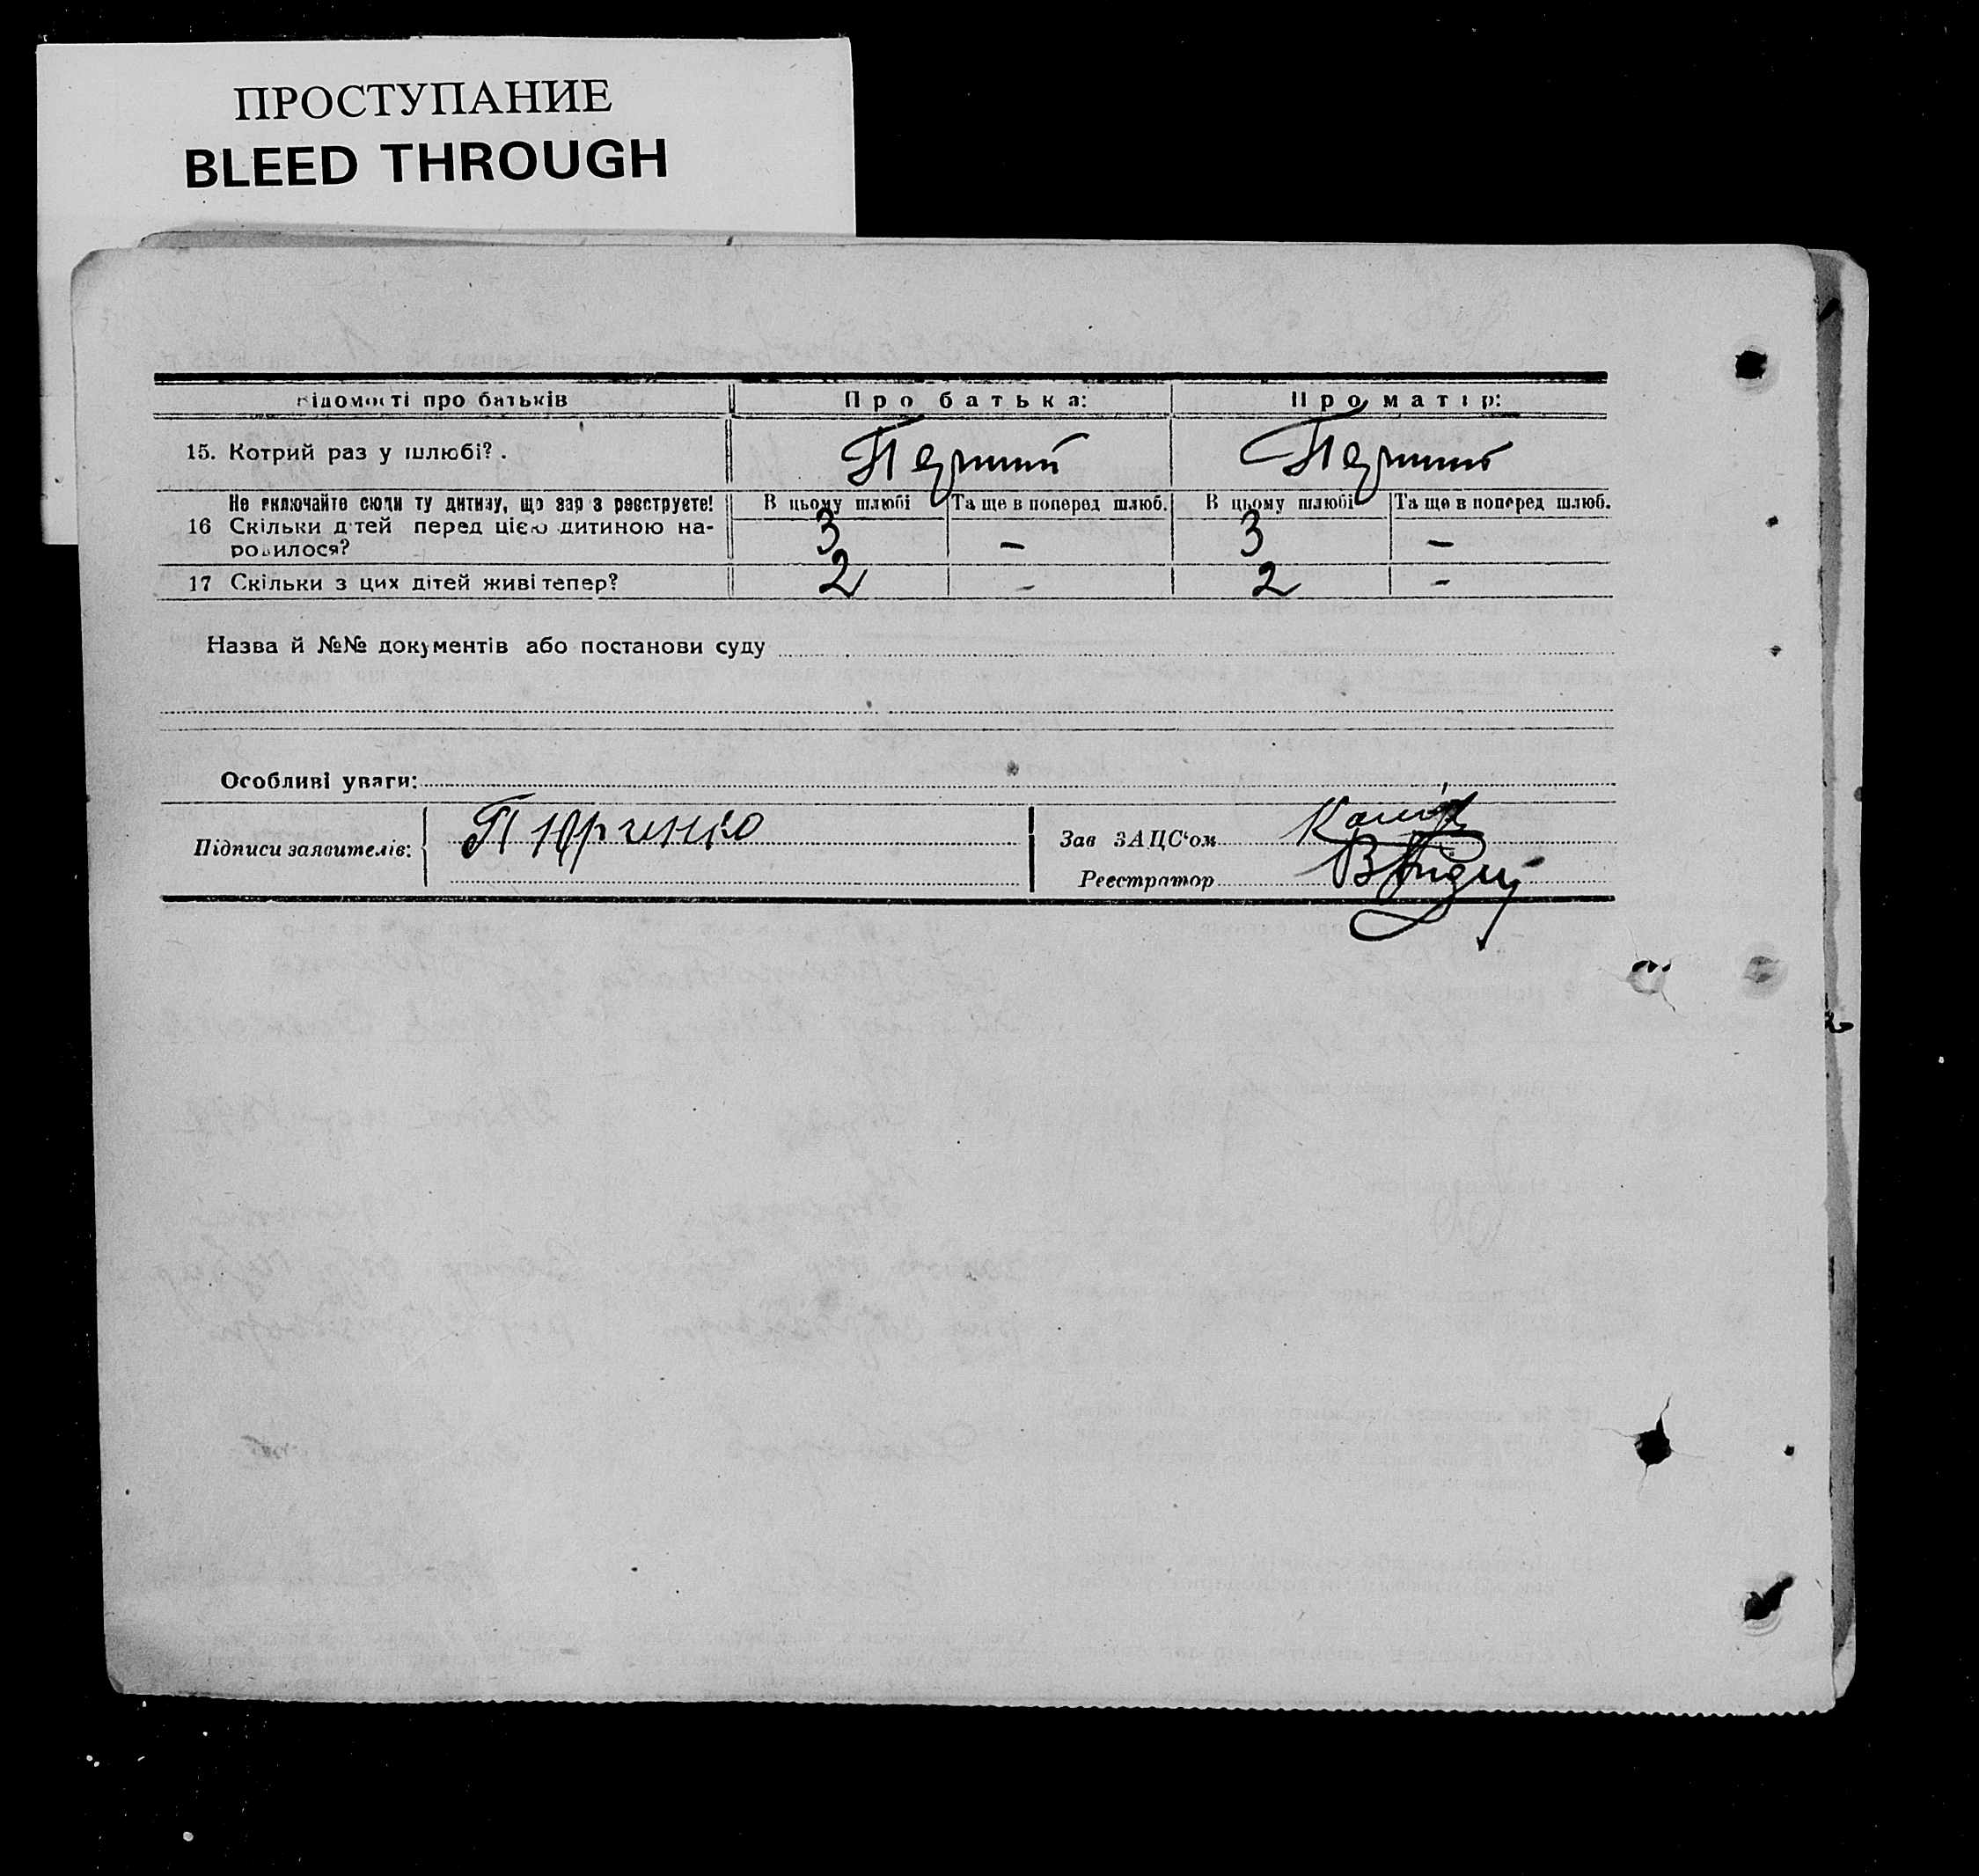 ПРОСТУПАНИЕ
BLEED THROUGH
відомості про батьків Про батька: Про матір:
15. Котрий раз у шлюбі? . Перший Перший
Не включайте сюди ту дитину, що зараз реєструєте! В цьому шлюбі Та ще в поперед шлюб. В цьому шлюбі Та ще в поперед шлюб.
16 Скільки дітей перед цією дитиною на-
родилося? 3 — 3 —
17 Скільки з цих дітей живі тепер? 2 - 2 -
Назва й №№ документів або постанови суду
Особливі уваги:
Підписи заявителів: П Юрченко
Зав ЗАЦС‘ом
Реєстратор